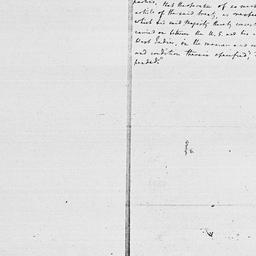 that the operation of so much
article of the said treaty, as respects
which his said Majesty thereby consents
carried on between the U.S. and his
West Indies, in the manner and on
and condition therein specified,
pended."